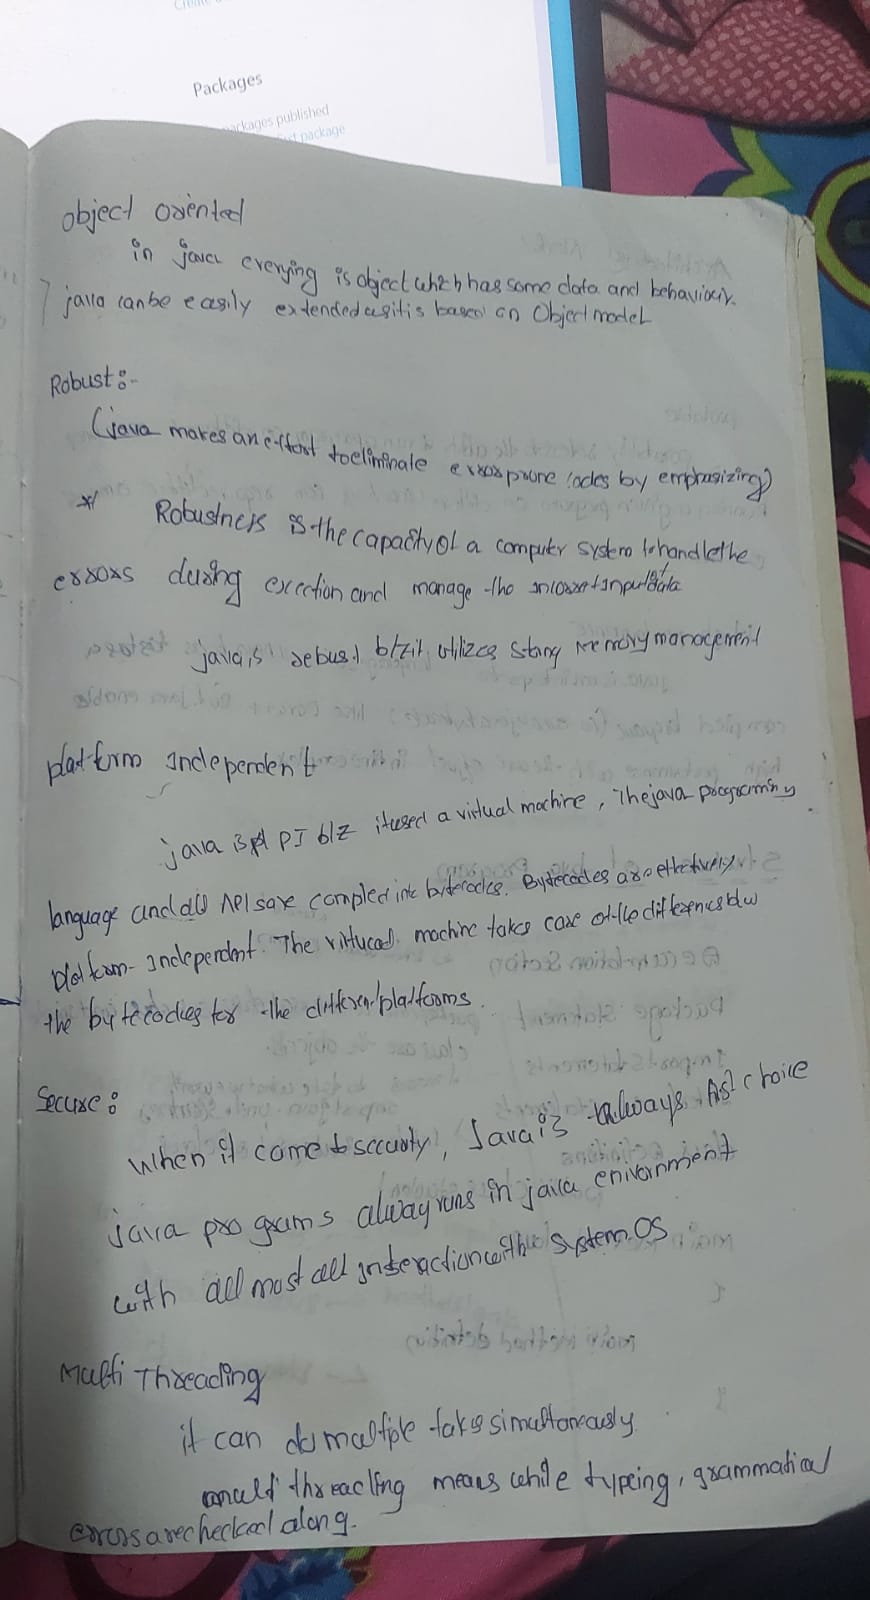 Packages
packages published
package
object oriented
in java everying is object which has some data and behaviour.
java can be easily extended as it is based on Object model
Robust:-
(java makes an effort to eliminate error prone codes by emphasizing)
* Robustness is the capacity of a computer system to handle the
errors during exection and manage the incorrect input data
java is robust b/z it utilizes strong memory management
platform Independent
java is PI b/z it used a virtual machine, The java programming
language and all APIs are compled into bytecodes. Bytecodes are effectively
platform-Independent. The virtucal machine takes care of the differences b/w
the bytecodes for the different platforms.
Secure:
When it come to security, Java is always 1st choice
java programs always runs in java enivornment
with all most all interaction with system OS
Multi Threading
it can do multiple taks simultoneously
multi threading means while typeing, grammatical
errors are checked along.